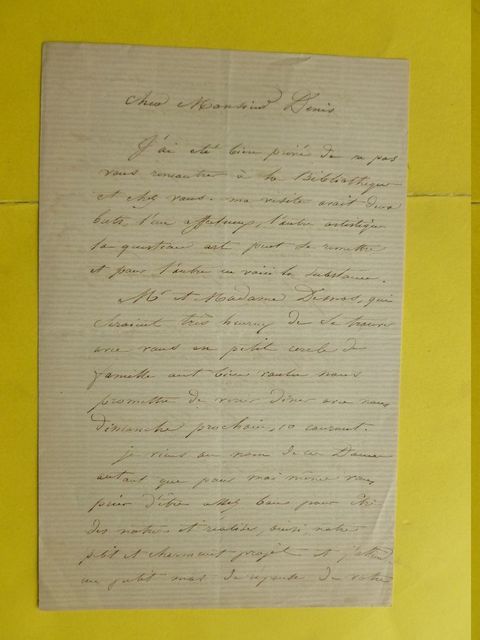 Cher Monsieur Denis
J'ai été bien privé de ne pas
vous rencontrer à la Bibliothèque
et chez vous. ma visite avait deux
buts, l'un affectueux, l'autre artistique
la question art peut se remettre
et pour l'autre en voici la substance.
Mr et Madame Dumas, qui
seraient très heureux de se trouver
avec vous en petit cercle de
famille ont bien voulu nous
promettre de venir dîner avec nous
dimanche prochain, 10 courant.
je viens au nom de ces Dames
autant que pour moi même vous
prier d'être assez bon pour être
des notres et réaliser, ainsi notre
petit et charmant projet et j'attends
un petit mot de réponse de votre